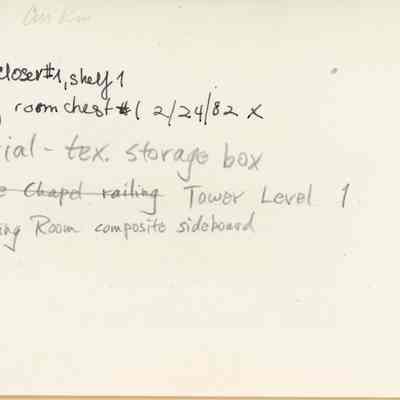 closet#1, shelf 1
room chest #1 2/24/82 X
ial - tex. storage box
e Chapel railing Tower Level 1
ing Room composite sideboard